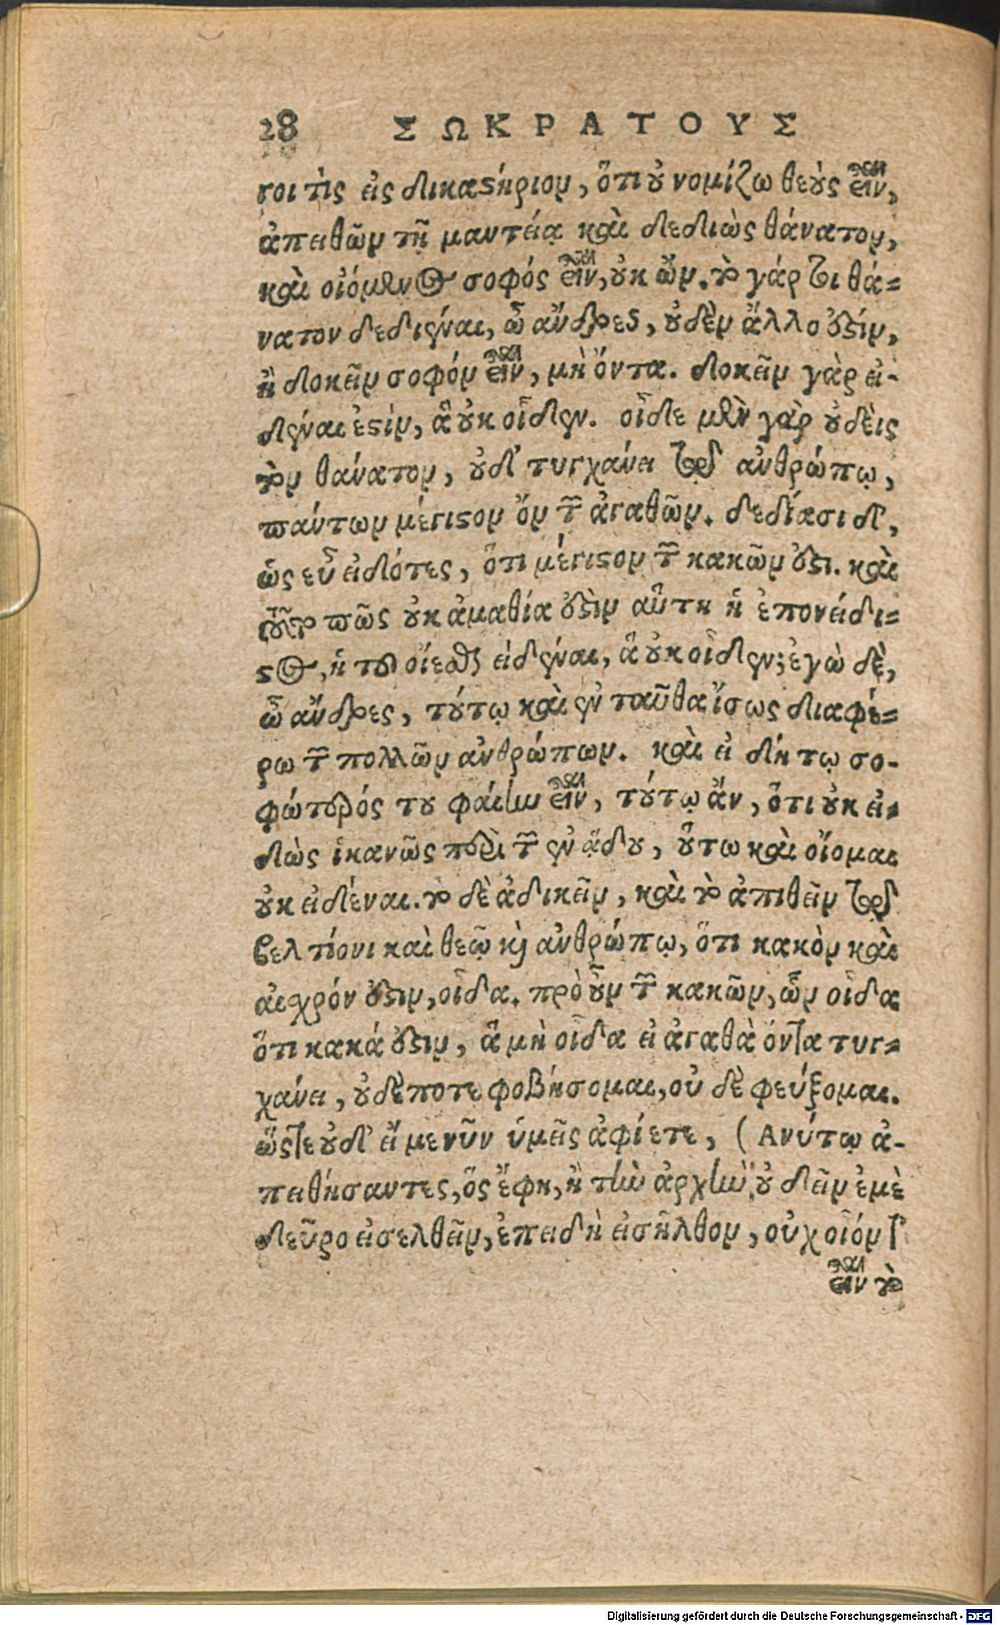 28 ΣΩΚΡΑΤΟΥΣ
γοι τὶς εἰς δικαστήριον, ὅτι οὐ νομίζω θεοὺς εἶναι,
ἀπειθῶν τῇ μαντείᾳ καὶ δεδιὼς θάνατον,
καὶ οἰόμενος σοφός εἶναι, οὐκ ὤν. τὸ γάρ τοι θά=
νατον δεδιέναι, ὦ ἄνδρες, οὐδὲν ἄλλο ἐστίν,
ἢ δοκεῖν σοφόν εἶναι, μὴ ὄντα. δοκεῖν γὰρ εἰ-
δέναι ἐστίν, ἃ οὐκ οἶδεν. οἶδε μὲν γὰρ οὐδεὶς
τὸν θάνατον, οὐδ' τυγχάνει τῷ ἀνθρώπῳ,
πάντων μέγιστον ὂν τῶν ἀγαθῶν. δεδίασι δ',
ὡς εὖ εἰδότες, ὅτι μέγιστον τῶν κακῶν ἐστι. καὶ
τοῦτο πῶς οὐκ ἀμαθία ἐστὶν αὕτη ἡ ἐπονείδι=
στος, ἡ τοῦ οἴεσθαι εἰδέναι, ἃ οὐκ οἶδεν; ἐγὼ δὲ,
ὦ ἄνδρες, τούτῳ καὶ ἐνταῦθα ἴσως διαφέ=
ρω τῶν πολλῶν ἀνθρώπων. καὶ εἰ δή τῳ σο-
φώτερός του φαίην εἶναι, τούτῳ ἄν, ὅτι οὐκ εἰ=
δὼς ἱκανῶς περὶ τῶν ἐν ᾅδου, οὕτω καὶ οἴομαι
οὐκ εἰδέναι. τὸ δὲ ἀδικεῖν, καὶ τὸ ἀπιθεῖν τῷ
βελτίονι καὶ θεῷ καὶ ἀνθρώπῳ, ὅτι κακὸν καὶ
αἰσχρόν ἐστιν, οἶδα. πρὸ οὖν τῶν κακῶν, ὧν οἶδα
ὅτι κακά ἐστιν, ἃ μὴ οἶδα εἰ ἀγαθὰ ὄντα τυγ=
χάνει, οὐδέποτε φοβήσομαι, οὐ δὲ φεύξομαι.
ὥστε οὐδ' εἴ με νῦν ὑμεῖς ἀφίετε, (Ἀνύτῳ ἀ-
πειθήσαντες, ὃς ἔφη, ἢ τὴν ἀρχὴν οὐ δεῖν ἐμὲ
δεῦρο εἰσελθεῖν, ἐπειδὴ εἰσῆλθον, οὐχ οἷόν τ'
εἶναι τὸ
Digitalisierung gefördert durch die Deutsche Forschungsgemeinschaft - DFG